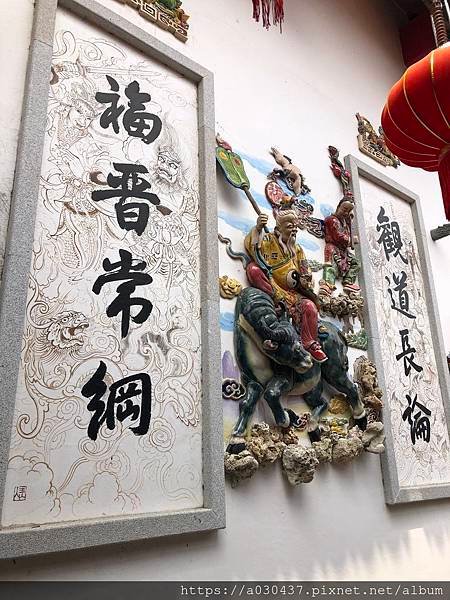 福晉常綱
觀道長倫
https://a030437.pixnet.net/album